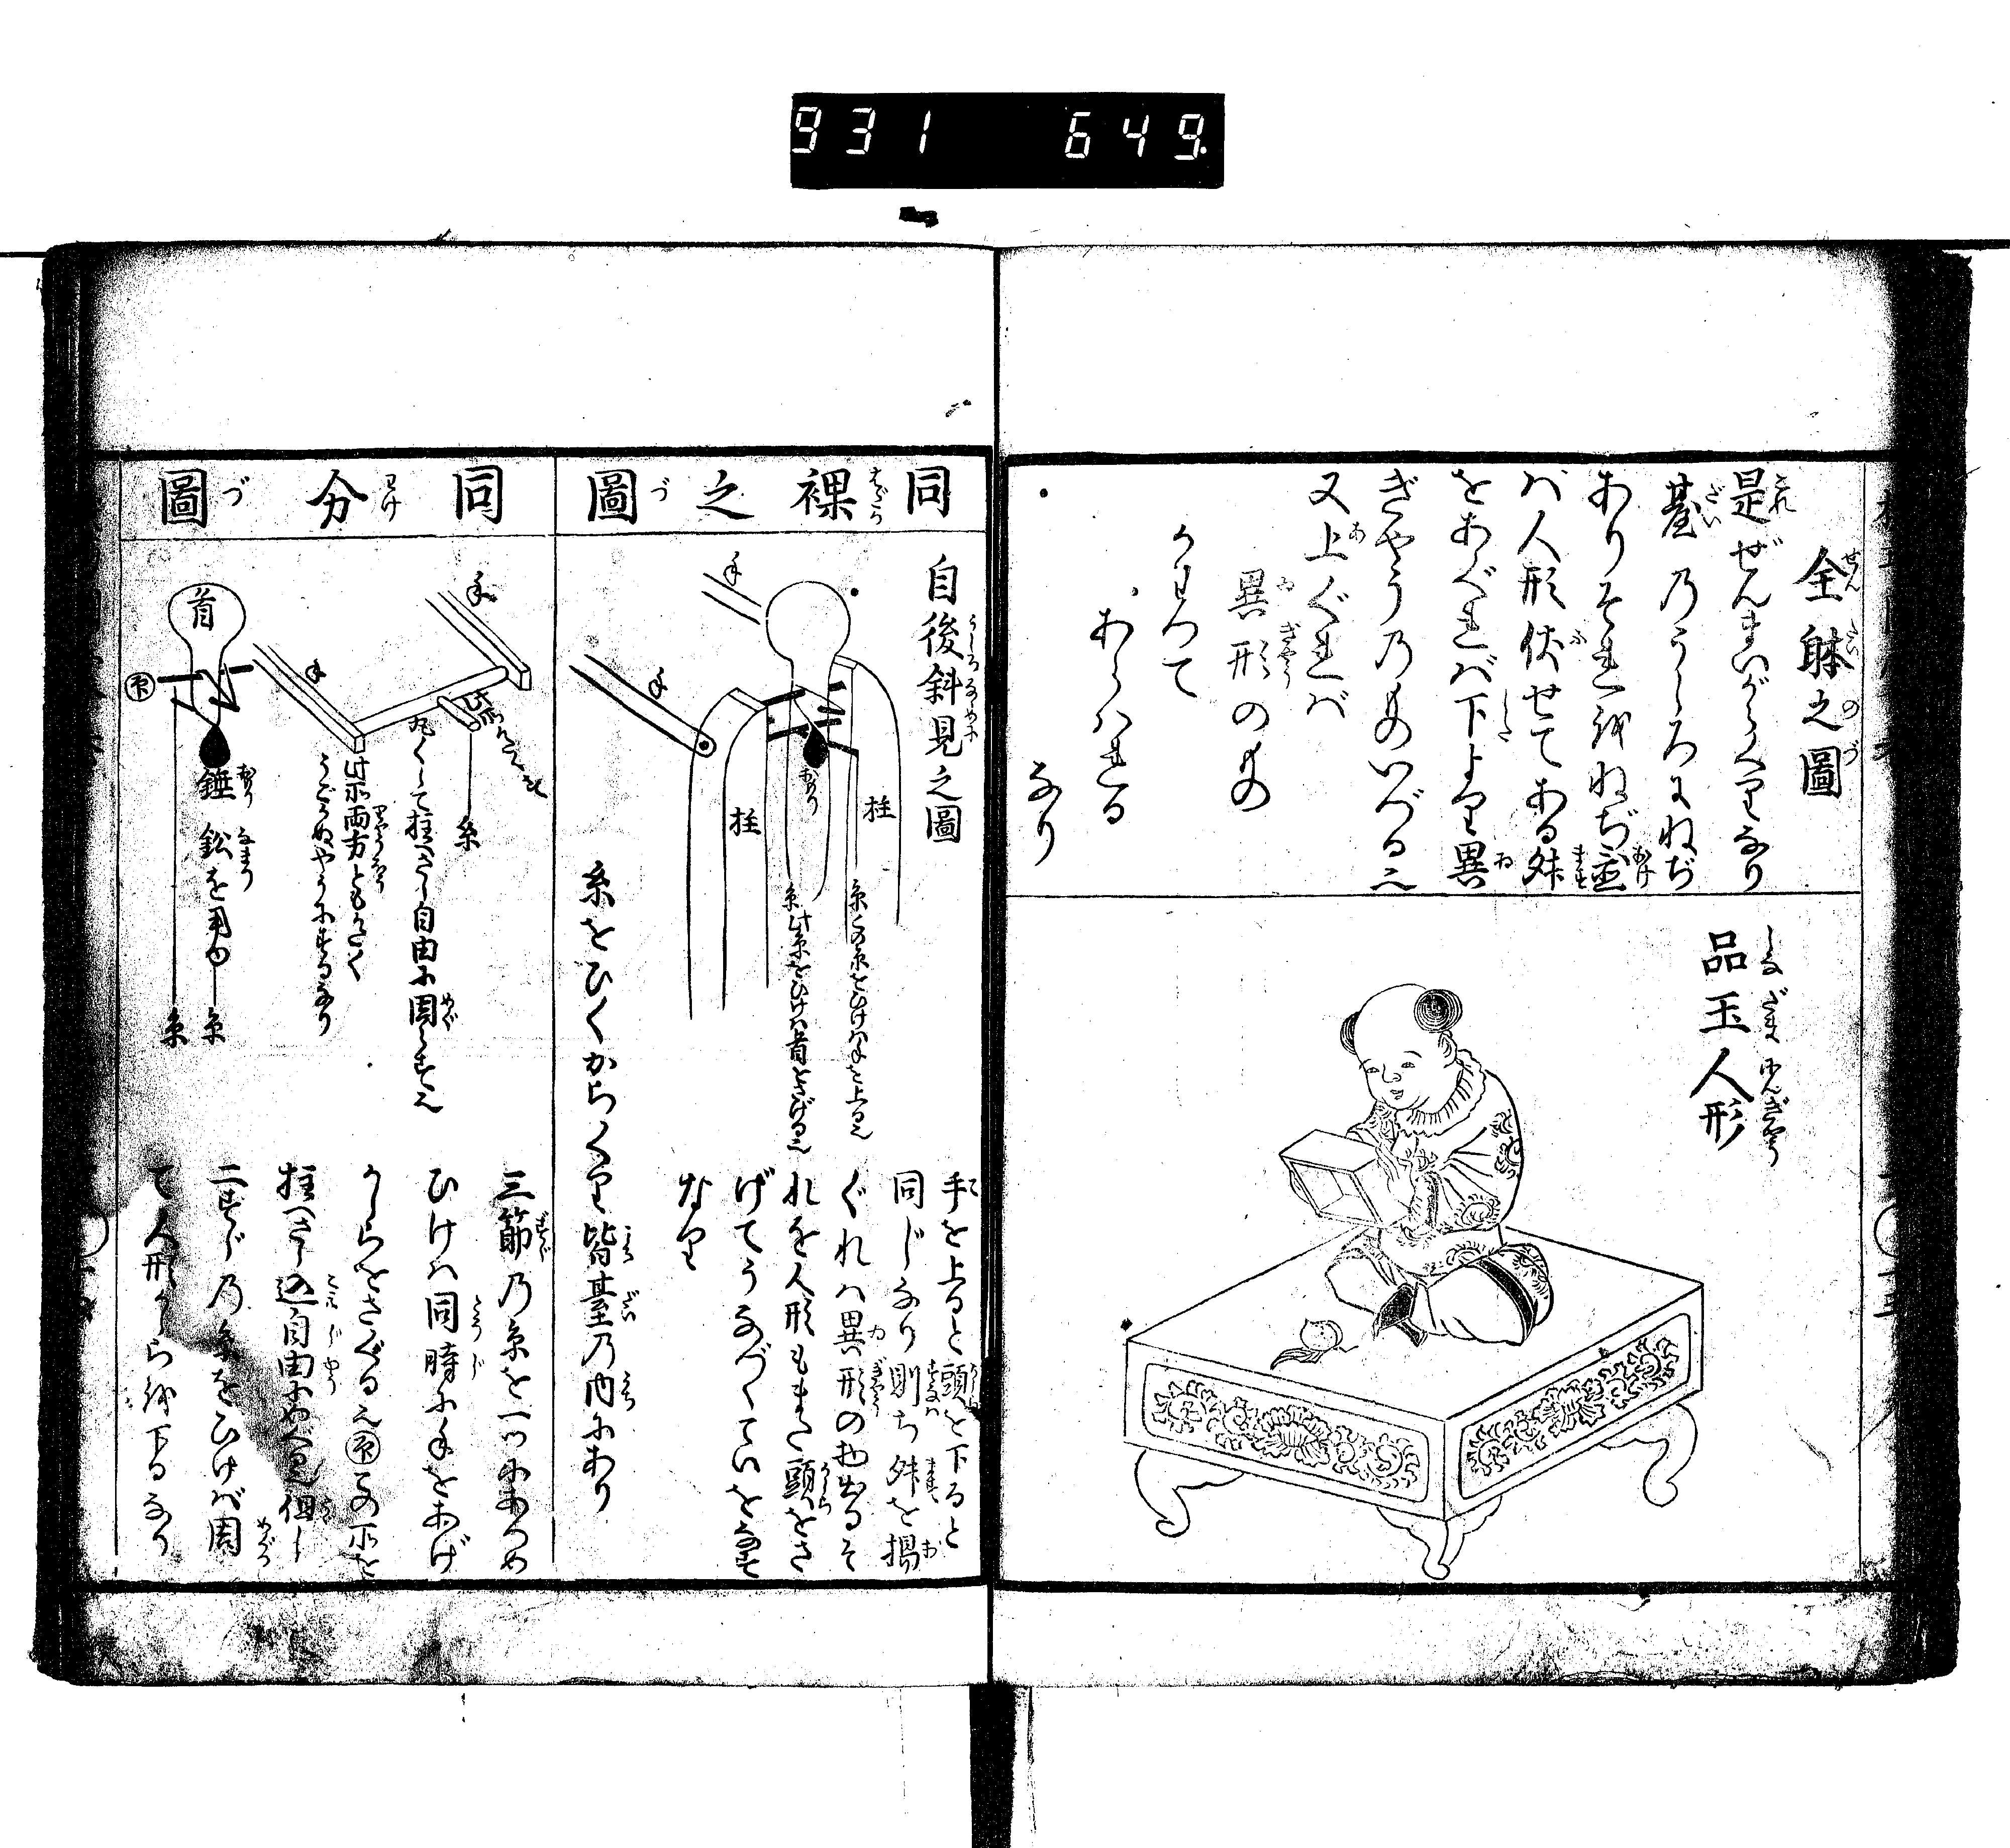 931 649.
全躰之圖
是ぜんまいがらくりなり
臺のうしろにねぢ
ありそれをねぢ置
バ人形伏せてある舛
をあぐれバ下より異
ぎやうのものいづる也
又上ぐれバ
異形のもの
かはつて
あらハれる
なり
品玉人形
しなだまにんぎやう
同裸之圖
自後斜見之圖
手
手
柱
柱
おもり
糸 この糸をひけハ手を上る也
糸 此糸をひけハ首をさげる也
手を上ると頭を下ると
同じなり則ち舛を揚
ぐれハ異形の物出るそ
れを人形もまた頭をさ
げてうなづくていをなす
なり
糸をひくからくり皆臺の内にあり
同分圖
手
手
糸
丸くして柱へさし自由に周らす也
此所両方ともかたく
うごかぬやうにするなり
首
錘 鉛を用ゆ
糸
糸
三節の糸を一つにあつめ
ひけハ同時に手をあげ
かしらをさぐる也
柱へさし込自由にめぐる也但し
二すぢの糸をひけバ周
て人形かしらを下るなり